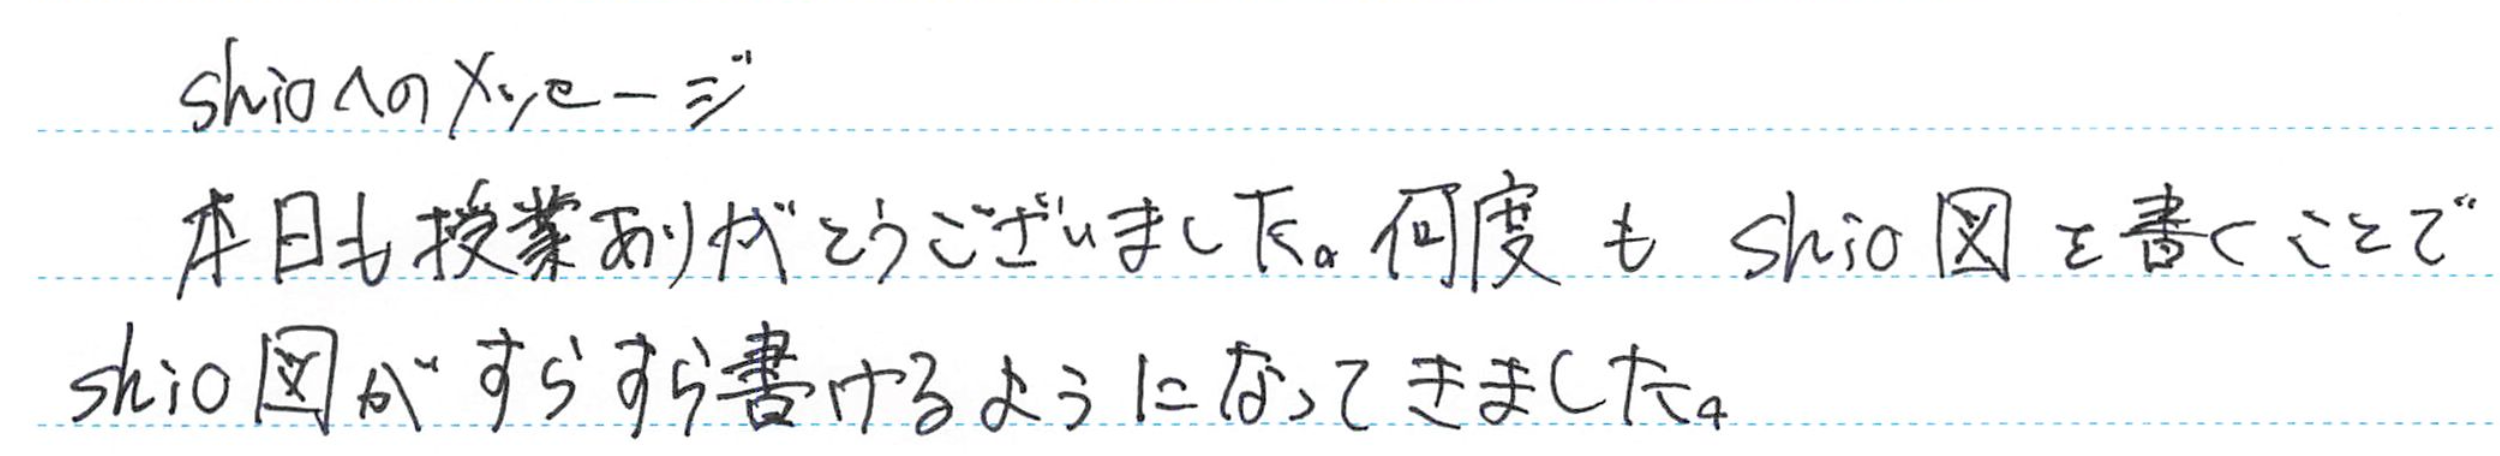 shioへのメッセージ
本日も授業ありがとうございました。何度もshio図を書くことで
shio図がすらすら書けるようになってきました。